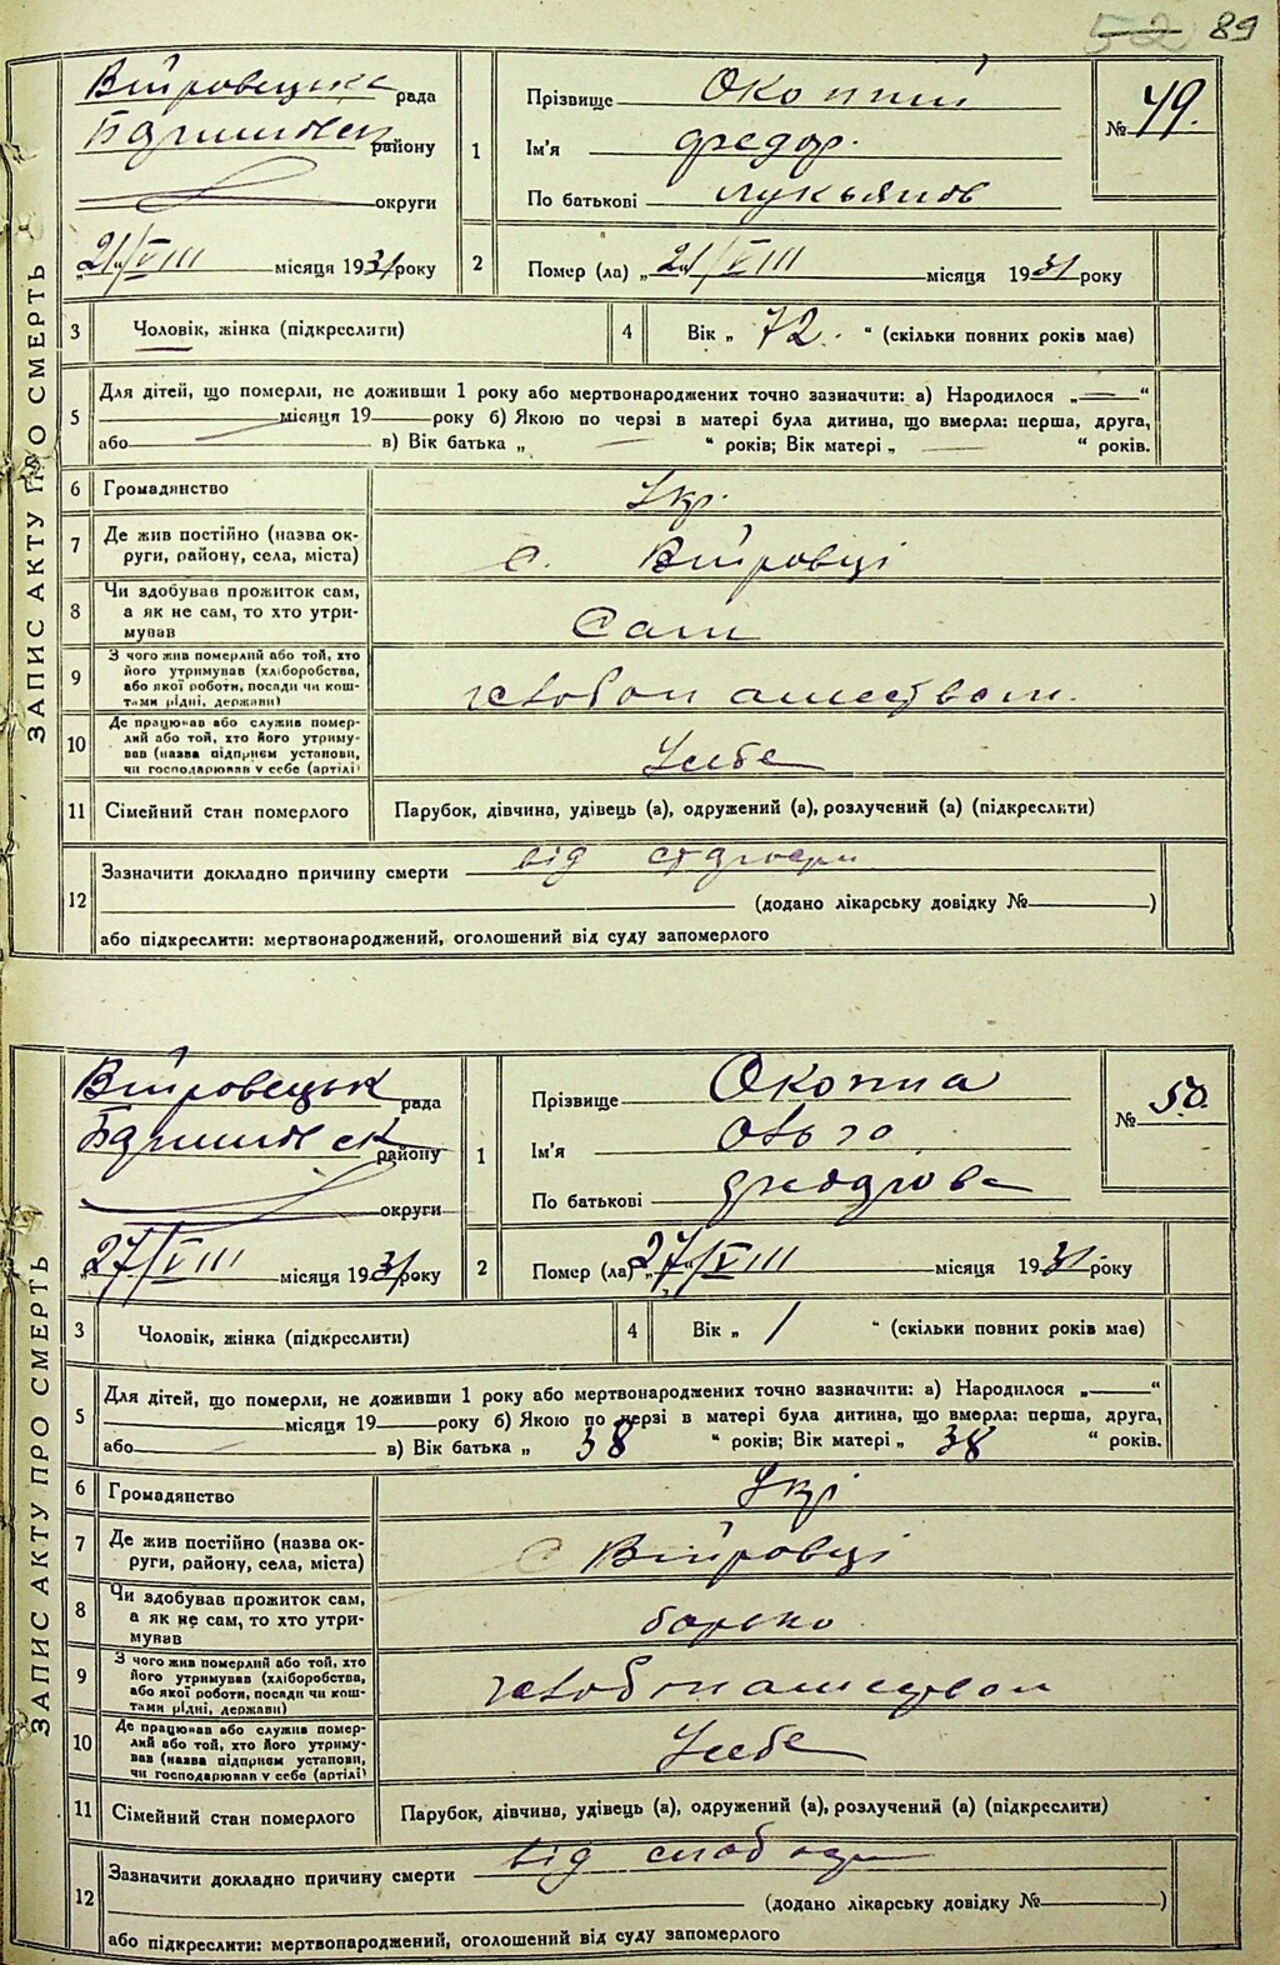 52 89
ЗАПИС АКТУ ПРО СМЕРТЬ
рада
району
округи
„21“/VIII місяця 1931 року
1
Прізвище Окопний
Ім'я Федор.
По батькові Лукьянов
№ 49.
2
Помер (ла) „21“/VIII місяця 1931 року
3 Чоловік, жінка (підкреслити)
4 Вік „ 72. “ (скільки повних років має)
5
Для дітей, що померли, не доживши 1 року або мертвонароджених точно зазначити: а) Народилося „—“
місяця 19 року б) Якою по черзі в матері була дитина, що вмерла: перша, друга,
або в) Вік батька „ — “ років; Вік матері „ — “ років.
6 Громадянство Укр.
7 Де жив постійно (назва ок-
руги, району, села, міста) с. Війровці
8 Чи здобував прожиток сам,
а як не сам, то хто утри-
мував Сам
9 З чого жив померлий або той, хто
його утримував (хліборобства,
або якої роботи, посади чи кош-
тами рідні, держави)
10 Де працював або служив помер-
лий або той, хто його утриму-
вав (назва підприєм установи,
чи господарював у себе (артілі) У себе
11 Сімейний стан померлого Парубок, дівчина, удівець (а), одружений (а), розлучений (а) (підкреслити)
12 Зазначити докладно причину смерти від
(додано лікарську довідку № )
або підкреслити: мертвонароджений, оголошений від суду запомерлого
ЗАПИС АКТУ ПРО СМЕРТЬ
рада
району
округи
„27“/VIII місяця 1931 року
1
Прізвище Окопна
Ім'я Ольга
По батькові Федорова
№ 50.
2
Помер (ла) „27“/VIII місяця 1931 року
3 Чоловік, жінка (підкреслити)
4 Вік „ 1 “ (скільки повних років має)
5
Для дітей, що померли, не доживши 1 року або мертвонароджених точно зазначити: а) Народилося „—“
місяця 19 року б) Якою по черзі в матері була дитина, що вмерла: перша, друга,
або в) Вік батька „ 38 “ років; Вік матері „ 38 “ років.
6 Громадянство Укр
7 Де жив постійно (назва ок-
руги, району, села, міста) с Війровці
8 Чи здобував прожиток сам,
а як не сам, то хто утри-
мував
9 З чого жив померлий або той, хто
його утримував (хліборобства,
або якої роботи, посади чи кош-
тами рідні, держави)
10 Де працював або служив помер-
лий або той, хто його утриму-
вав (назва підприєм установи,
чи господарював у себе (артілі) У себе
11 Сімейний стан померлого Парубок, дівчина, удівець (а), одружений (а), розлучений (а) (підкреслити)
12 Зазначити докладно причину смерти від
(додано лікарську довідку № )
або підкреслити: мертвонароджений, оголошений від суду запомерлого